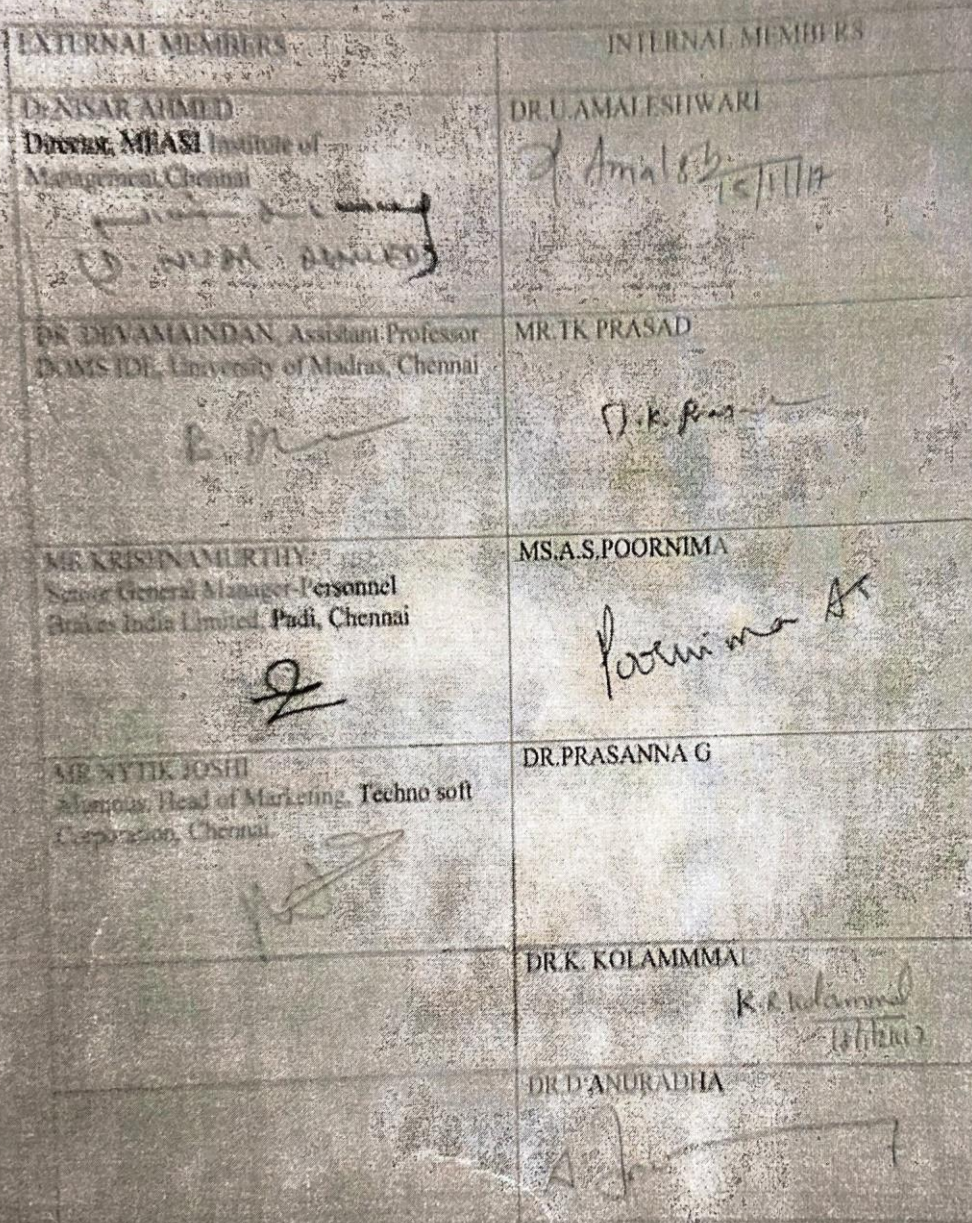 EXTERNAL MEMBERS
INTERNAL MEMBERS
Dr.NISAR AHMED
Director, MEASI Institute of
Management,Chennai
DR.U.AMALESHWARI
DR. DEVAMAINDAN, Assistant Professor
DOMS IDE, University of Madras, Chennai
MR.TK PRASAD
MR KRISHNAMURTHY
Senior General Manager-Personnel
Brakes India Limited, Padi, Chennai
MS.A.S.POORNIMA
Poornima AS
MR NYTIK JOSHI
Head of Marketing, Techno soft
Corporation, Chennai.
DR.PRASANNA G
DR.K. KOLAMMMAL
K.R.Kolammal
DR.D.ANURADHA